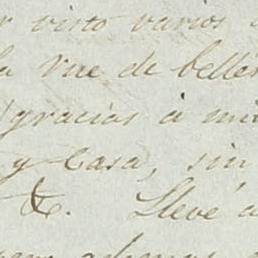 r visto varios
la Vue de belle
gracias á mi
y Casa, sin
&. Llevé a